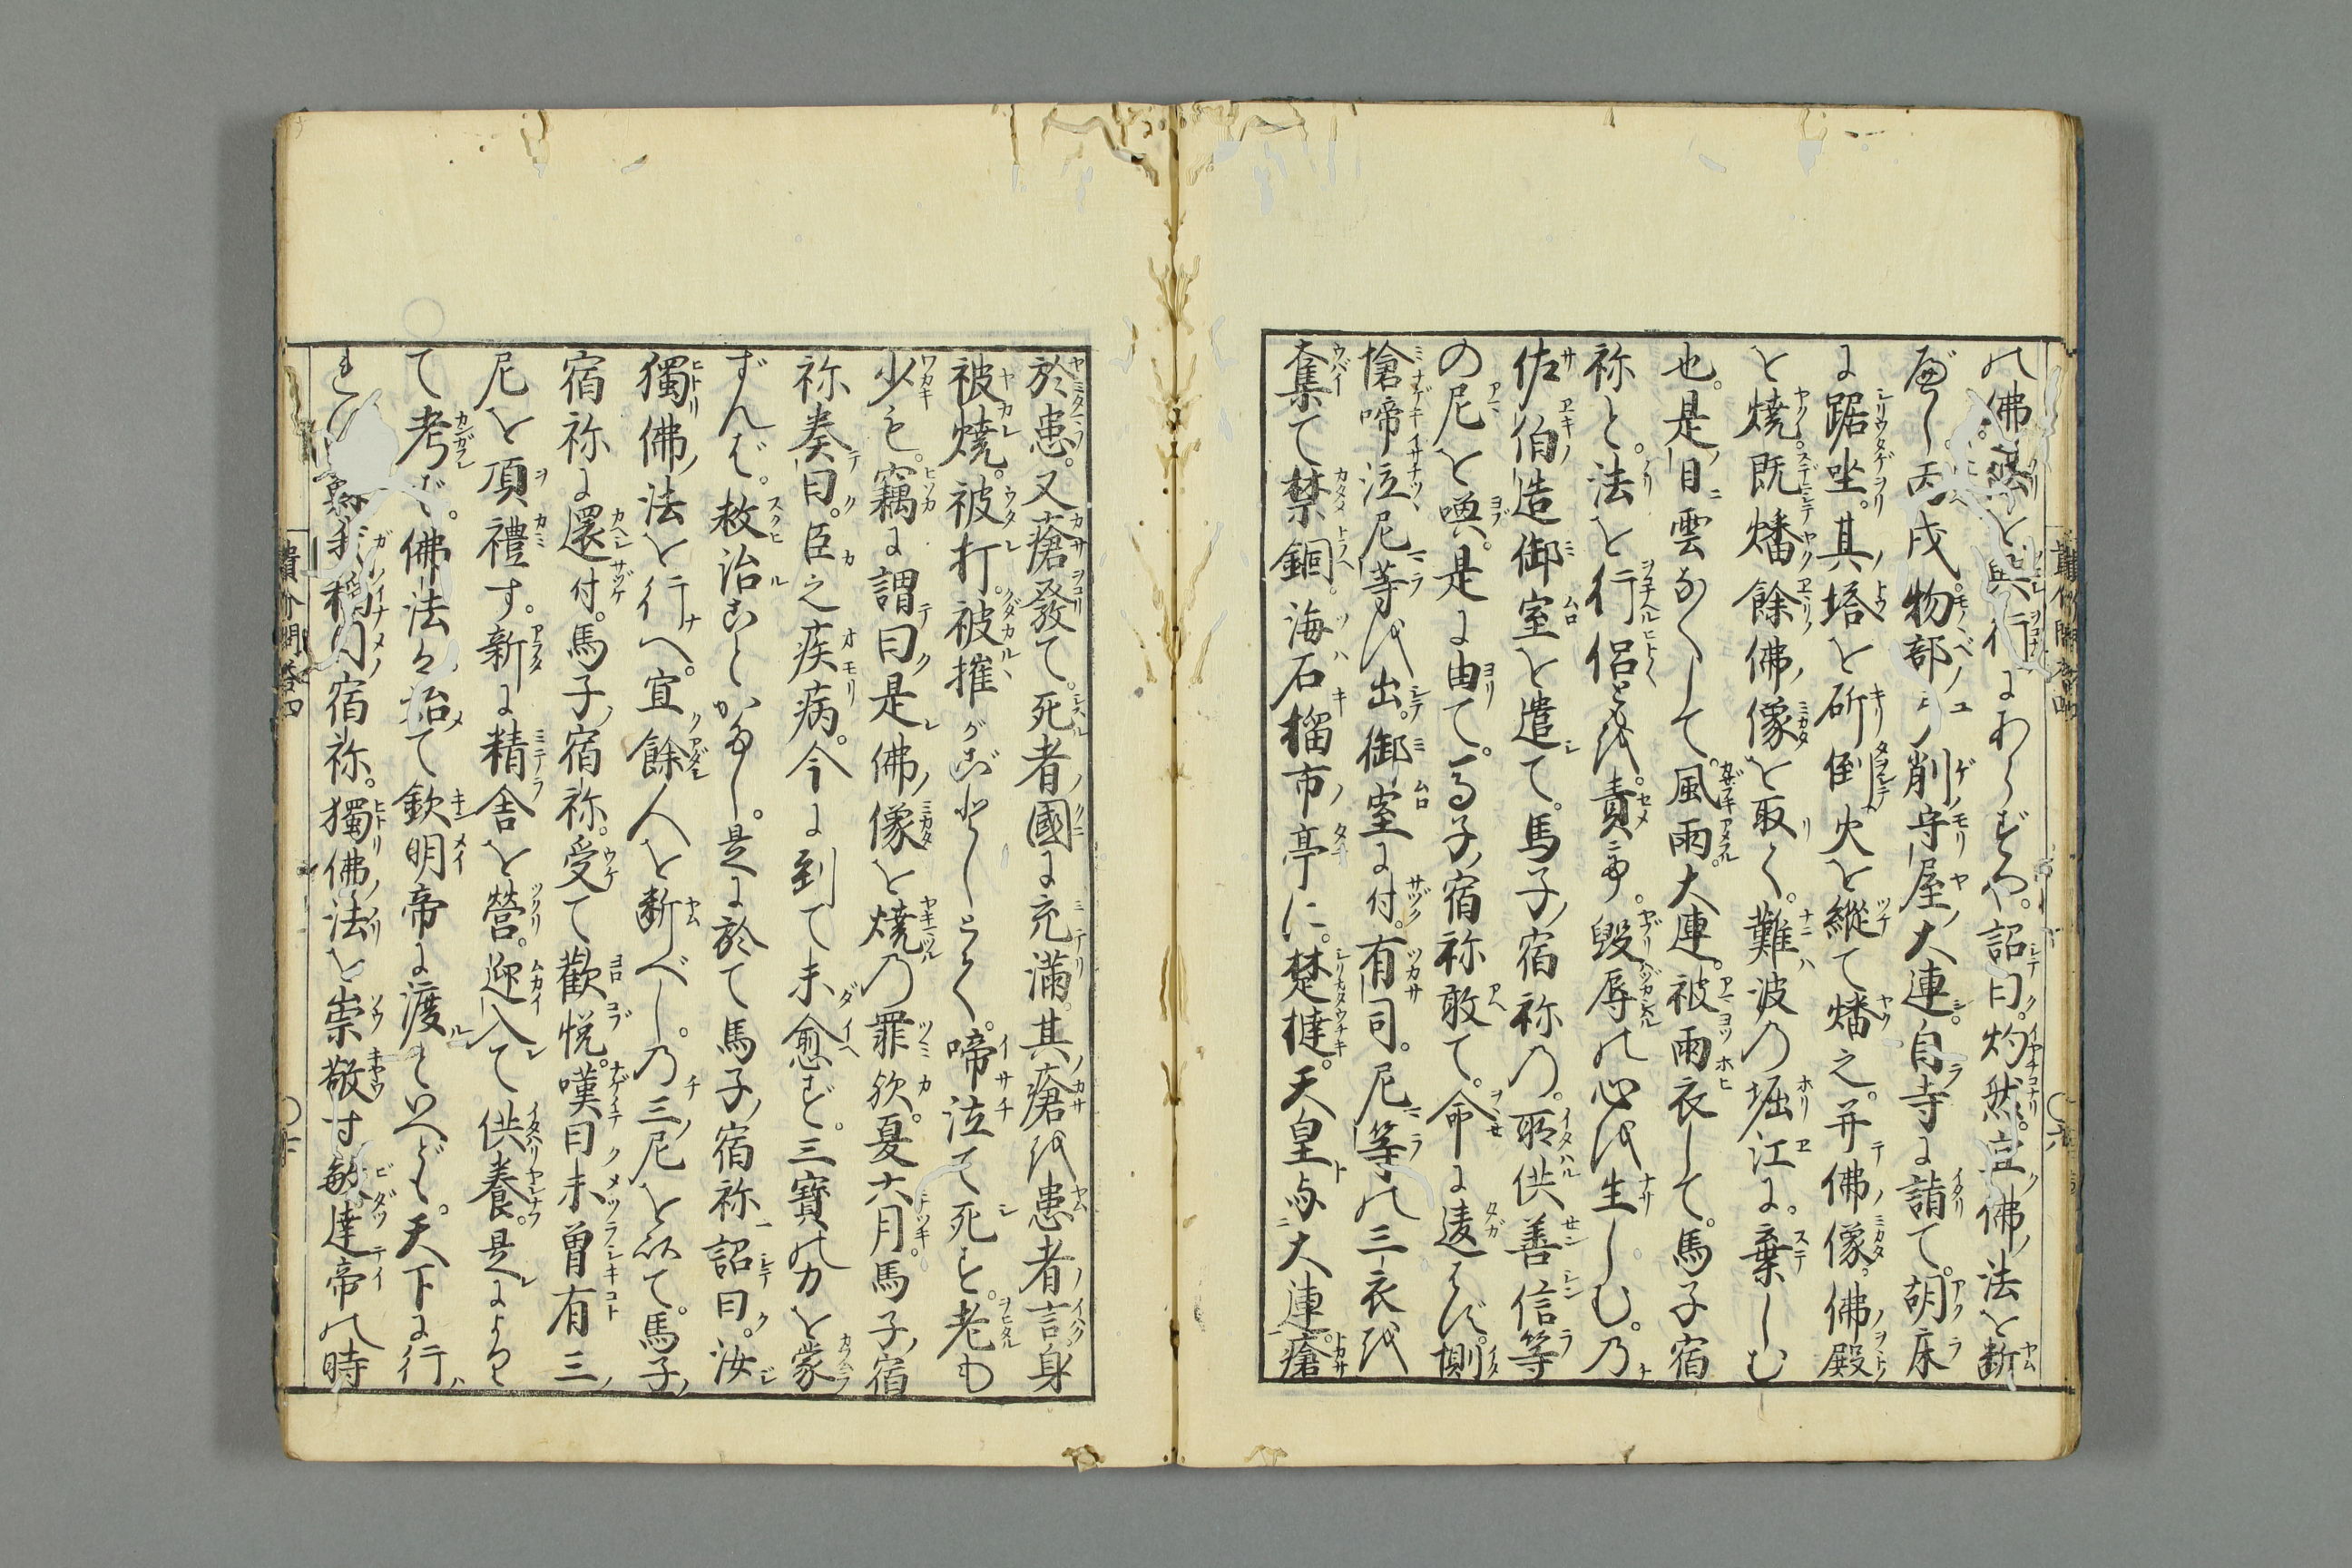 の佛法を興行にあらずや。詔曰。灼然。宜佛法を断
べし。丙戌。物部ノ弓削守屋ノ大連。自寺に詣て。胡床
に踞坐。其塔を斫倒火を縦て燔之。并佛像。佛殿
を焼。既燔餘佛像を取く。難波の堀江に。棄しむ
也。是日雲なくして。風雨。大連。被雨衣して。馬子宿
祢と。法を行侶ともを責て。毀辱の心を生しむ。乃
佐伯造御室を遣て。馬子ノ宿祢の。所供善信等
の尼を喚。是に由て。馬子ノ宿祢敢て。命に違はず。惻
愴啼泣。尼等を出。御室に付。有司。尼等の三衣を
奪て禁錮。海石榴市ノ亭に。楚撻。天皇与大連。瘡
於患。又瘡發て。死者國に充滿。其瘡を患者ノ言。身
被燒。被打。被摧がごとしとて。啼泣て死す。老も
少も。竊に謂曰。是佛ノ像を燒の罪欤。夏六月。馬子ノ宿
祢奏曰。臣之疾病。今に到て未愈ず。三寶の力を蒙
ずんば。救治ことかなし。是に於て馬子ノ宿祢詔曰。汝
獨佛ノ法を行へ。宜餘人を断べし。乃三尼を以て。馬子ノ
宿祢に還付。馬子ノ宿祢。受て歡悦。嘆曰未曾有三
尼を頂禮す。新に精舎を營。迎入て供養。是により
て考ば。佛法は始て欽明帝に渡るといへども。天下に行
れず。蘇我稲目宿祢。獨佛ノ法を崇敬す。敏達帝の時